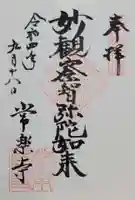 奉拝
妙觀察智弥陀如来
常楽寺
令和四年
九月十八日